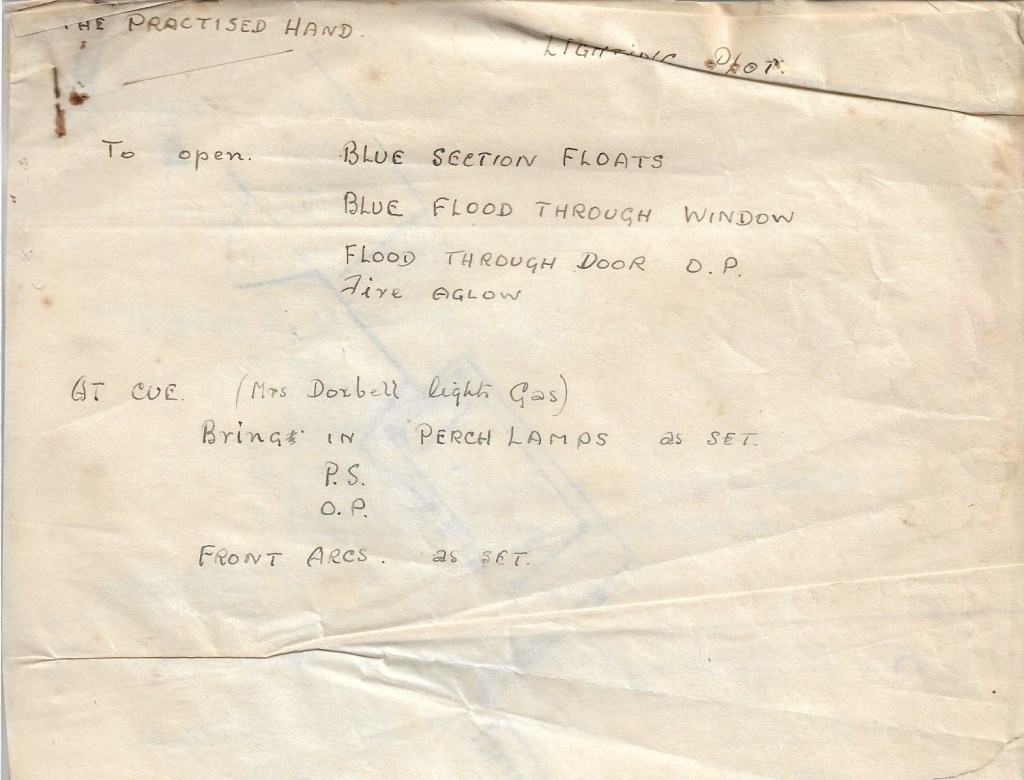 THE PRACTISED HAND.
LIGHTING PLOT.
To open. BLUE SECTION FLOATS
BLUE FLOOD THROUGH WINDOW
FLOOD THROUGH DOOR O.P.
Fire AGLOW
AT CUE. (Mrs Dorbell lights Gas)
Brings IN PERCH LAMPS as SET.
P.S.
O.P.
FRONT ARCS. as SET.